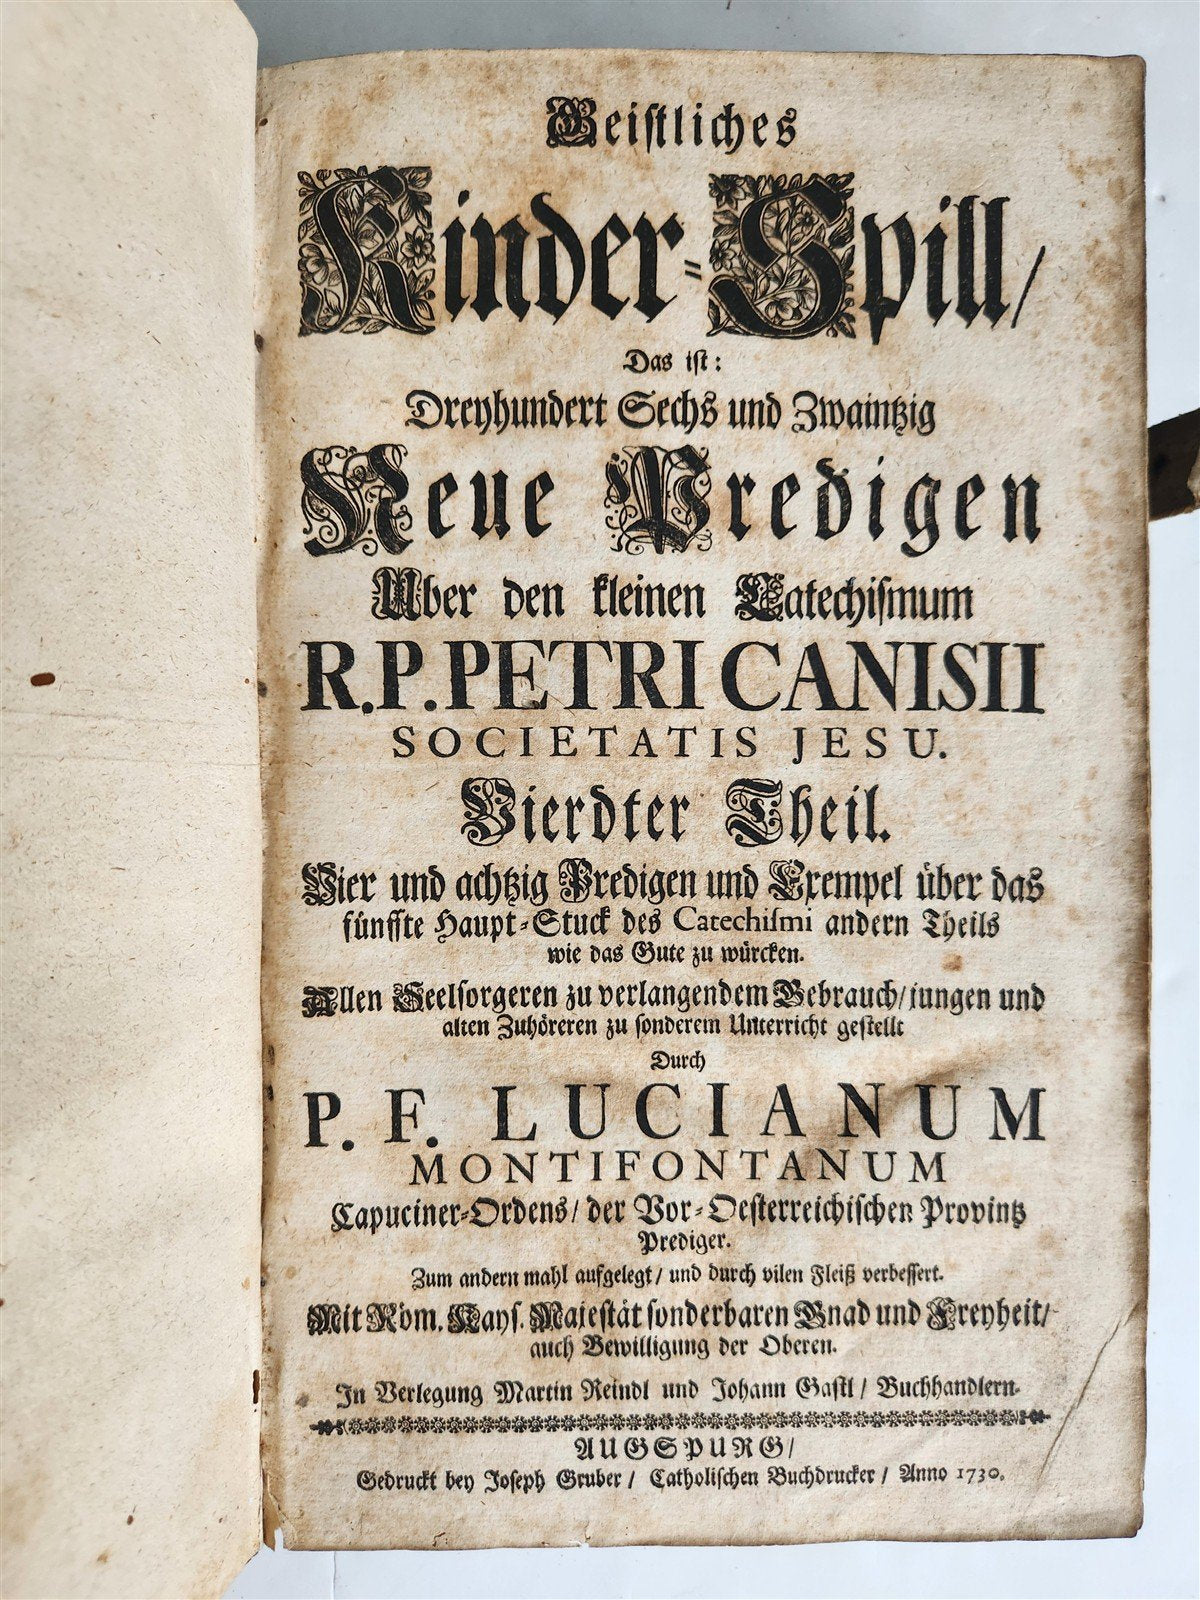 Geistliches
Kinder-Spill/
Das ist:
Dreyhundert Sechs und Zwaintzig
Neue Predigen
Uber den kleinen Catechismum
R.P. PETRI CANISII
SOCIETATIS JESU.
Vierdter Theil.
Vier und achtzig Predigen und Exempel über das
fünffte Haupt-Stuck des Catechismi andern Theils
wie das Gute zu würcken.
Allen Seelsorgeren zu verlangendem Gebrauch/ jungen und
alten Zuhöreren zu sonderem Unterricht gestellt
Durch
P. F. LUCIANUM
MONTIFONTANUM
Capuciner-Ordens/ der Vor-Oesterreichischen Provintz
Prediger.
Zum andern mahl aufgelegt/ und durch vilen Fleiß verbessert.
Mit Röm. Kays. Majestät sonderbaren Gnad und Freyheit/
auch Bewilligung der Oberen.
In Verlegung Martin Reindl und Johann Gastl/ Buchhandlern.
AUGSPURG/
Gedruckt bey Joseph Gruber/ Catholischen Buchdrucker/ Anno 1730.